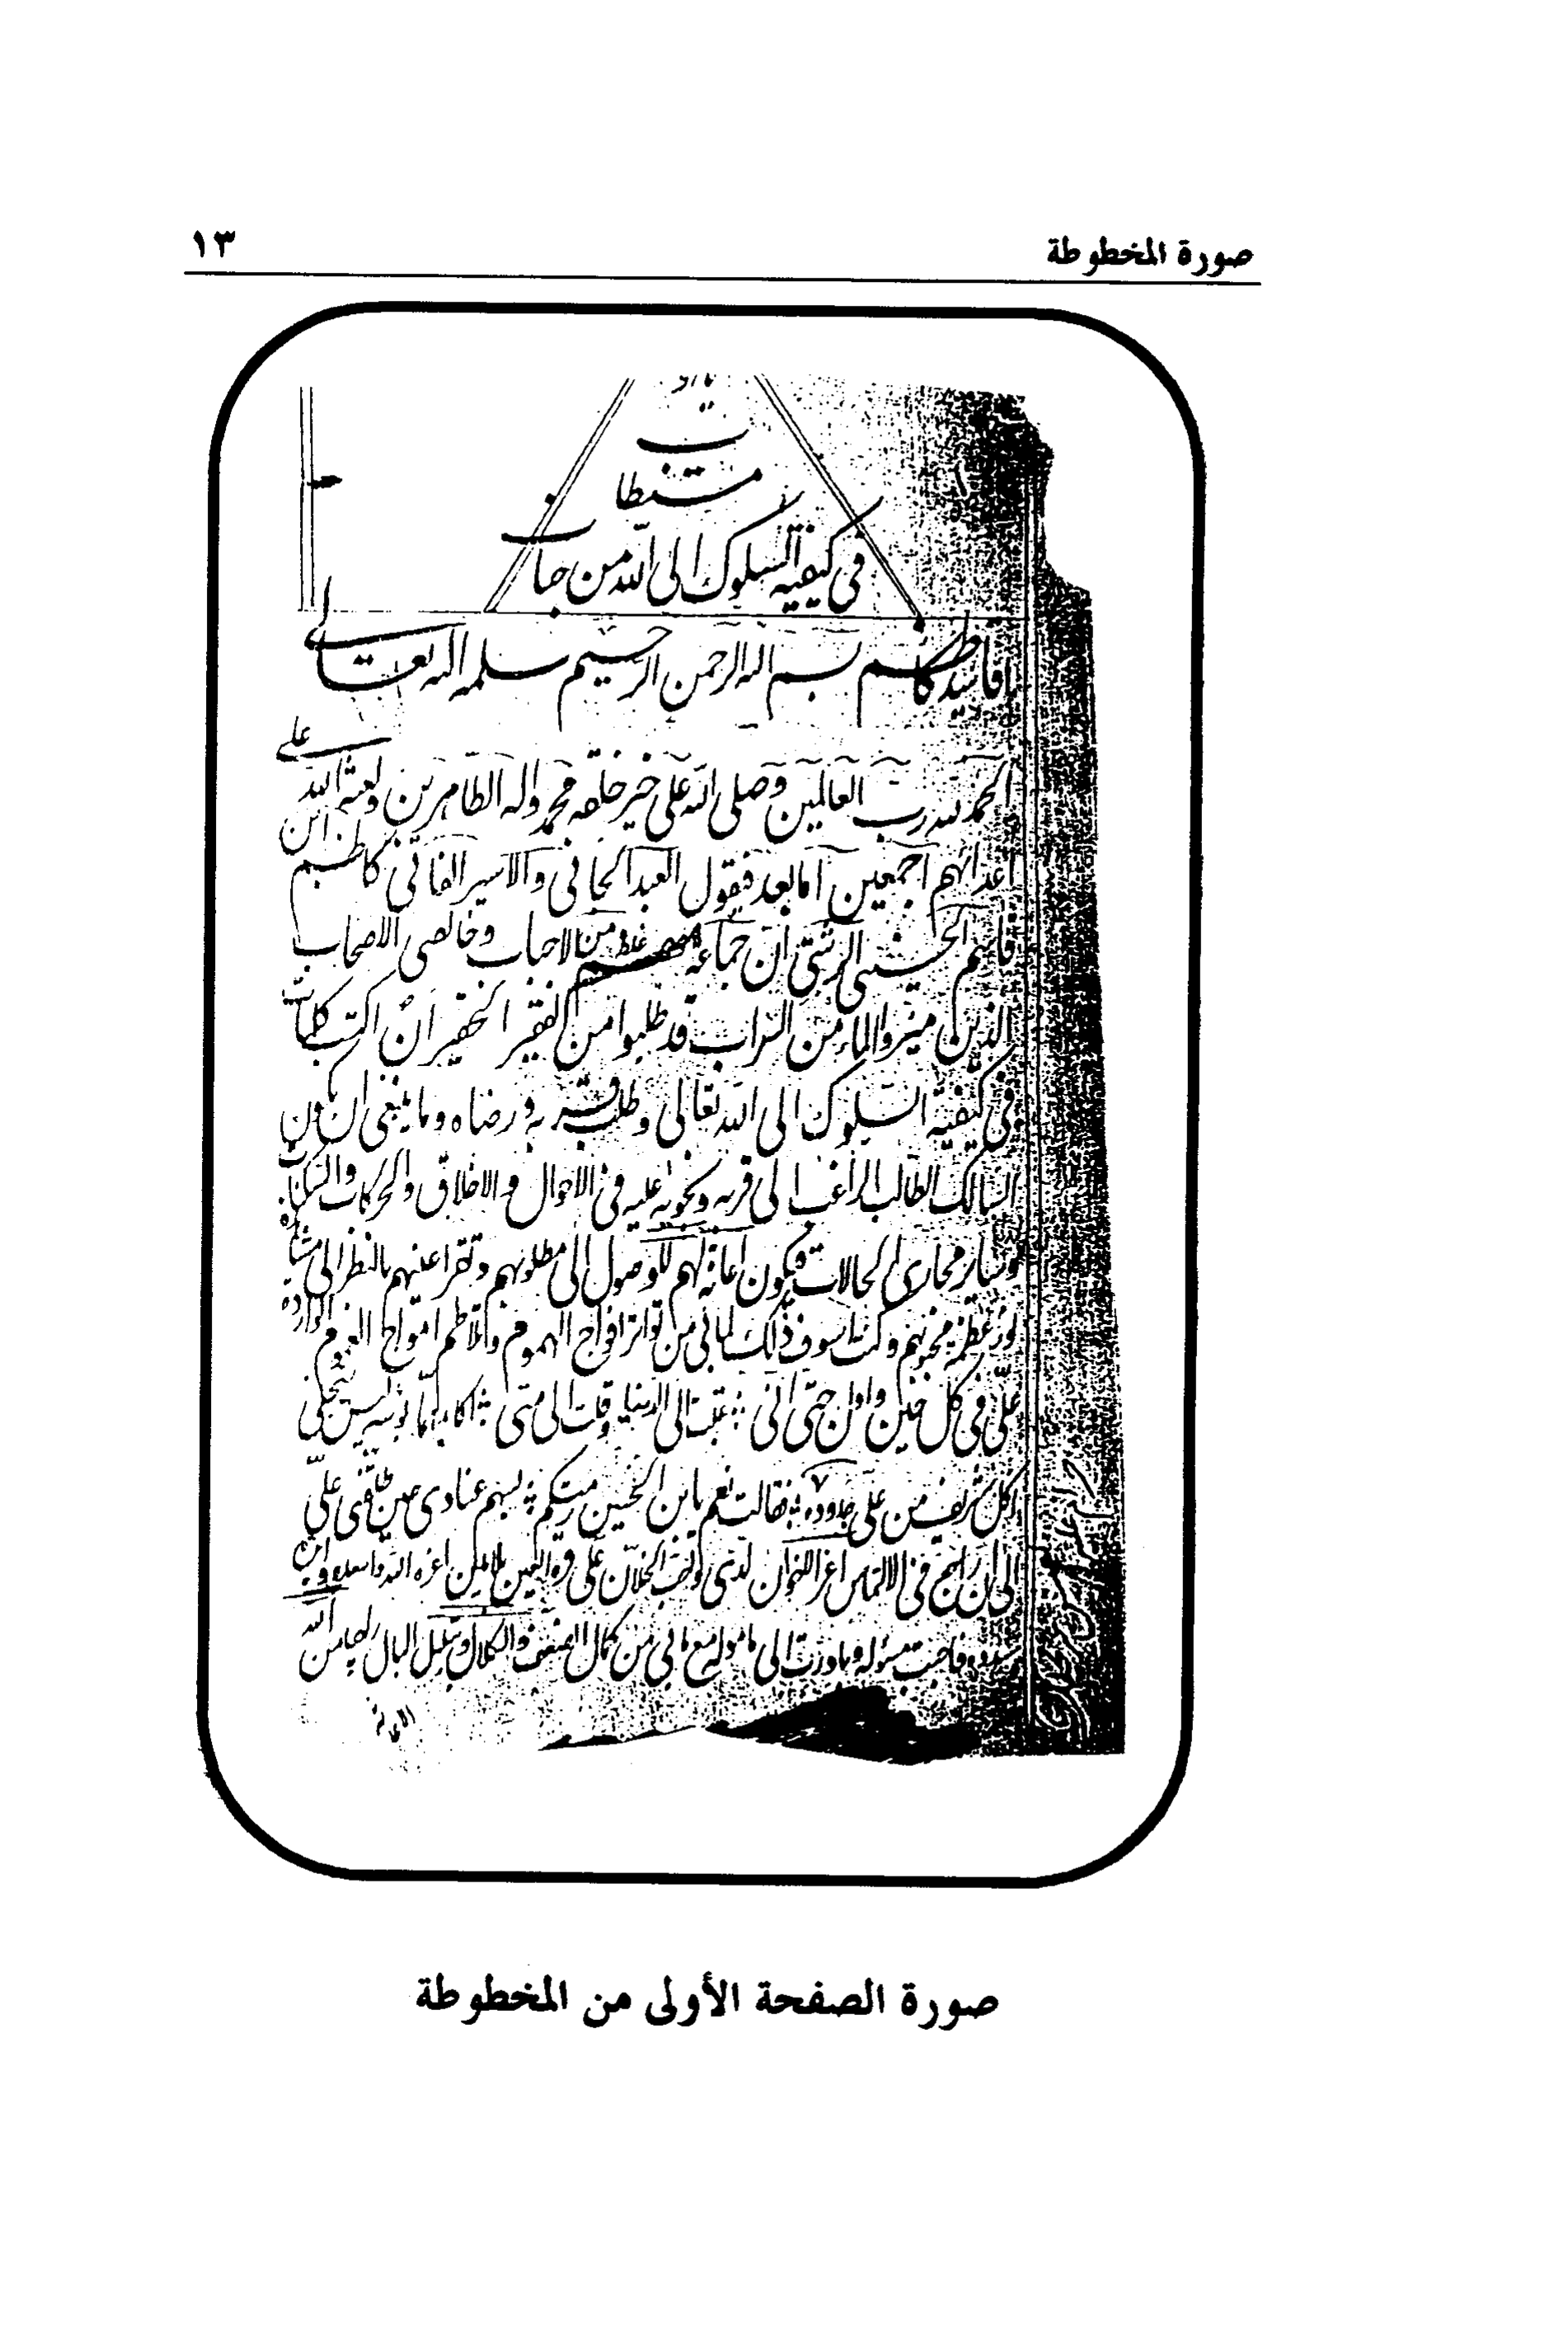 صورة المخطوطة
١٣
مستطاب
في كيفية السلوك الى الله من جناب
اقا سيد كاظم بسم الله الرحمن الرحيم سلمه الله تعالى
الحمد لله رب العالمين وصلى الله على خير خلقه محمد واله الطاهرين ولعنة الله على
اعدائهم اجمعين اما بعد فيقول العبد الجاني والاسير الفاني كاظم ابن
قاسم الحسيني الرشتي ان جماعة من الاحباب وخالصي الاصحاب
الذين ميزوا الماء من السراب قد طلبوا من الفقير الحقير ان اكتب كلمات
في كيفية السلوك الى الله تعالى وطلب قربه ورضاه وما ينبغي ان يكون
السالك الطالب الراغب الى قربه ونحوه عليه في الاحوال والاخلاق والحركات والسكنات
وسائر مجاري الحالات فيكون اعانة لهم للوصول الى مطلوبهم وتقر اعينهم بالنظر الى مشاهدة
نور عظمة محبوبهم وكنت اسوف ذلك لما بي من تواتر افواج الهموم وتلاطم امواج الغموم الواردة
علي في كل حين واوان حتى اني عتبت الى الدنيا وقلت الى متى اكابد بؤسه ليس ينجلي
اكل شريف من علي جدوده فقالت نعم يا بن الحسين رميتكم بسهم عنادي حين طلقني علي
الى ان في الالتماس اعز الاخوان لدي الخلان علي قرة العين اعزه الله
فاجبت مسئوله وبادرت الى مأموله مع ما بي من كمال الضعف والكلال وتبلبل البال راجيا من الله
الاعانة
صورة الصفحة الأولى من المخطوطة